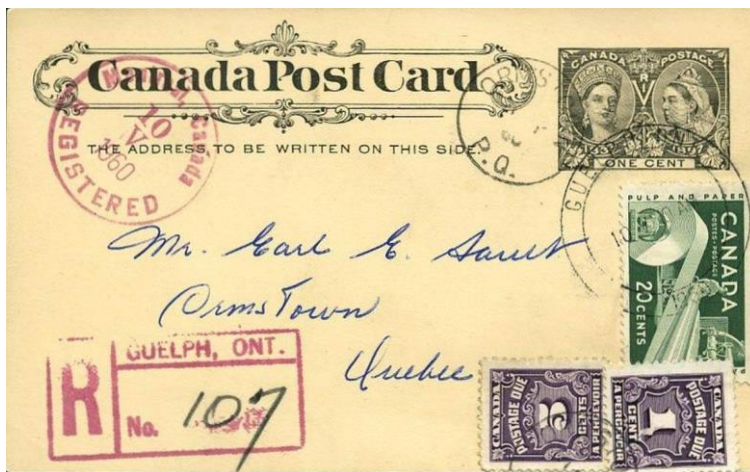 Canada Post Card
THE ADDRESS TO BE WRITTEN ON THIS SIDE.
CANADA POSTAGE
ONE CENT
Montreal, Canada
10
V
1960
REGISTERED
P.Q.
GUELPH
PULP AND PAPER
CANADA
POSTES-POSTAGE
20 CENTS
Mr. Earl E.
Ormstown
Quebec
R
GUELPH, ONT.
No. 107
CANADA
POSTAGE DUE
2
CENTS
A PERCEVOIR
CANADA
POSTAGE DUE
1
CENT
A PERCEVOIR